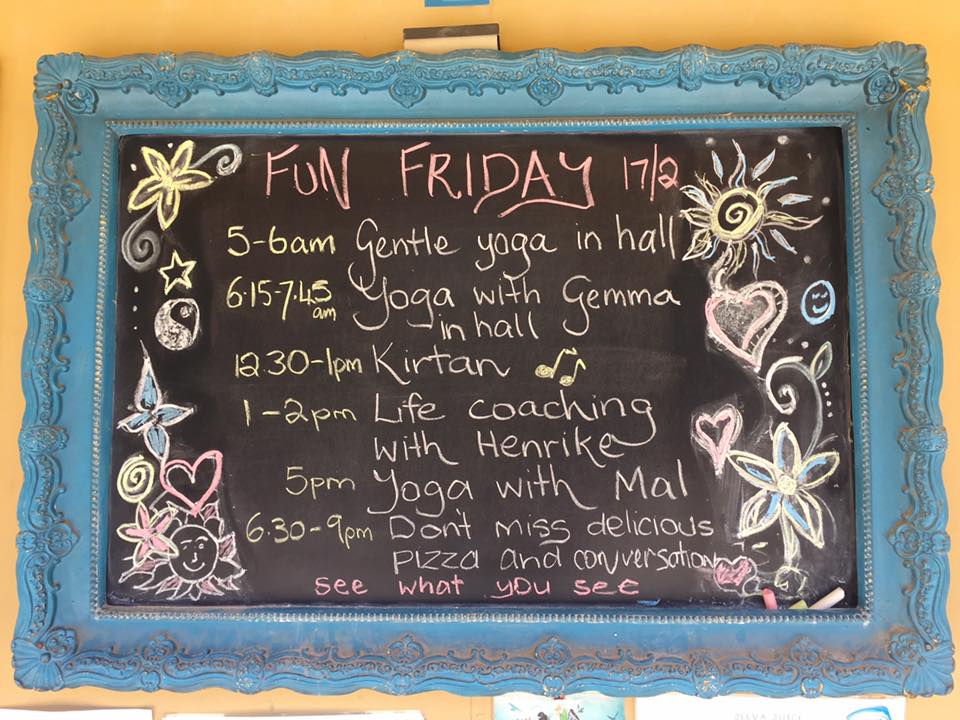 FUN FRIDAY 17/2
5-6am Gentle yoga in hall
6.15-7.45 am Yoga with Gemma
in hall
12.30-1pm Kirtan
1-2pm Life coaching
with Henrike
5pm Yoga with Mal
6.30-9pm Don't miss delicious
pizza and conversation
see what you see